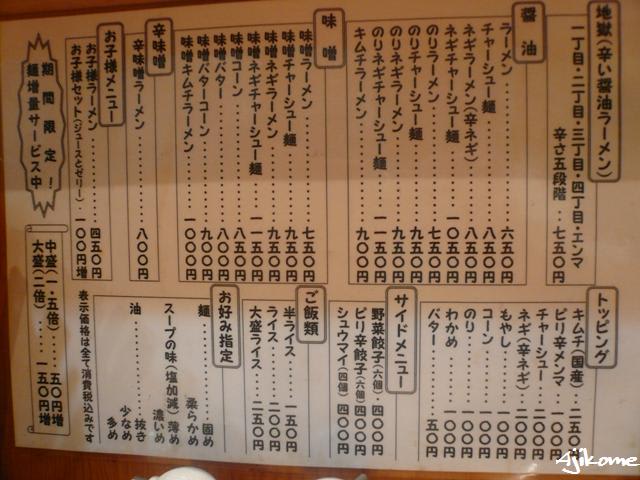 地獄(辛い醤油ラーメン)
一丁目・二丁目・三丁目・四丁目・エンマ
辛さ五段階……七五〇円
醤油
ラーメン……六五〇円
チャーシュー麺……八五〇円
ネギラーメン(辛ネギ)……八五〇円
ネギチャーシュー麺……一〇五〇円
のりラーメン……七五〇円
のりチャーシュー麺……九五〇円
のりネギラーメン……九五〇円
のりネギチャーシュー麺……一一五〇円
キムチラーメン……九〇〇円
味噌
味噌ラーメン……七五〇円
味噌チャーシュー麺……九五〇円
味噌ネギラーメン……九五〇円
味噌ネギチャーシュー麺……一一五〇円
味噌コーン……八五〇円
味噌バター……八〇〇円
味噌バターコーン……九〇〇円
味噌キムチラーメン……一〇〇〇円
辛味噌
辛味噌ラーメン……八〇〇円
お子様メニュー
お子様ラーメン……四五〇円
お子様セット(ジュースとゼリー)……一〇〇円増
期間限定!
麺増量サービス中
トッピング
キムチ(国産)……二五〇
ピリ辛メンマ
チャーシュー……二〇〇円
ネギ(辛ネギ)……二〇〇円
もやし……一〇〇円
コーン……一〇〇円
のり……一〇〇円
わかめ……一〇〇円
バター……五〇円
サイドメニュー
野菜餃子(六個)……四〇〇円
ピリ辛餃子(六個)……四〇〇円
シュウマイ(四個)……四〇〇円
ご飯類
半ライス……一五〇円
ライス……二〇〇円
大盛ライス……二五〇円
お好み指定
麺……固め
柔らかめ
スープの味(塩加減)薄め
濃いめ
油……抜き
少なめ
多め
表示価格は全て消費税込みです
中盛(一・五倍)……五〇円増
大盛(二倍)……一五〇円増
Ajikome